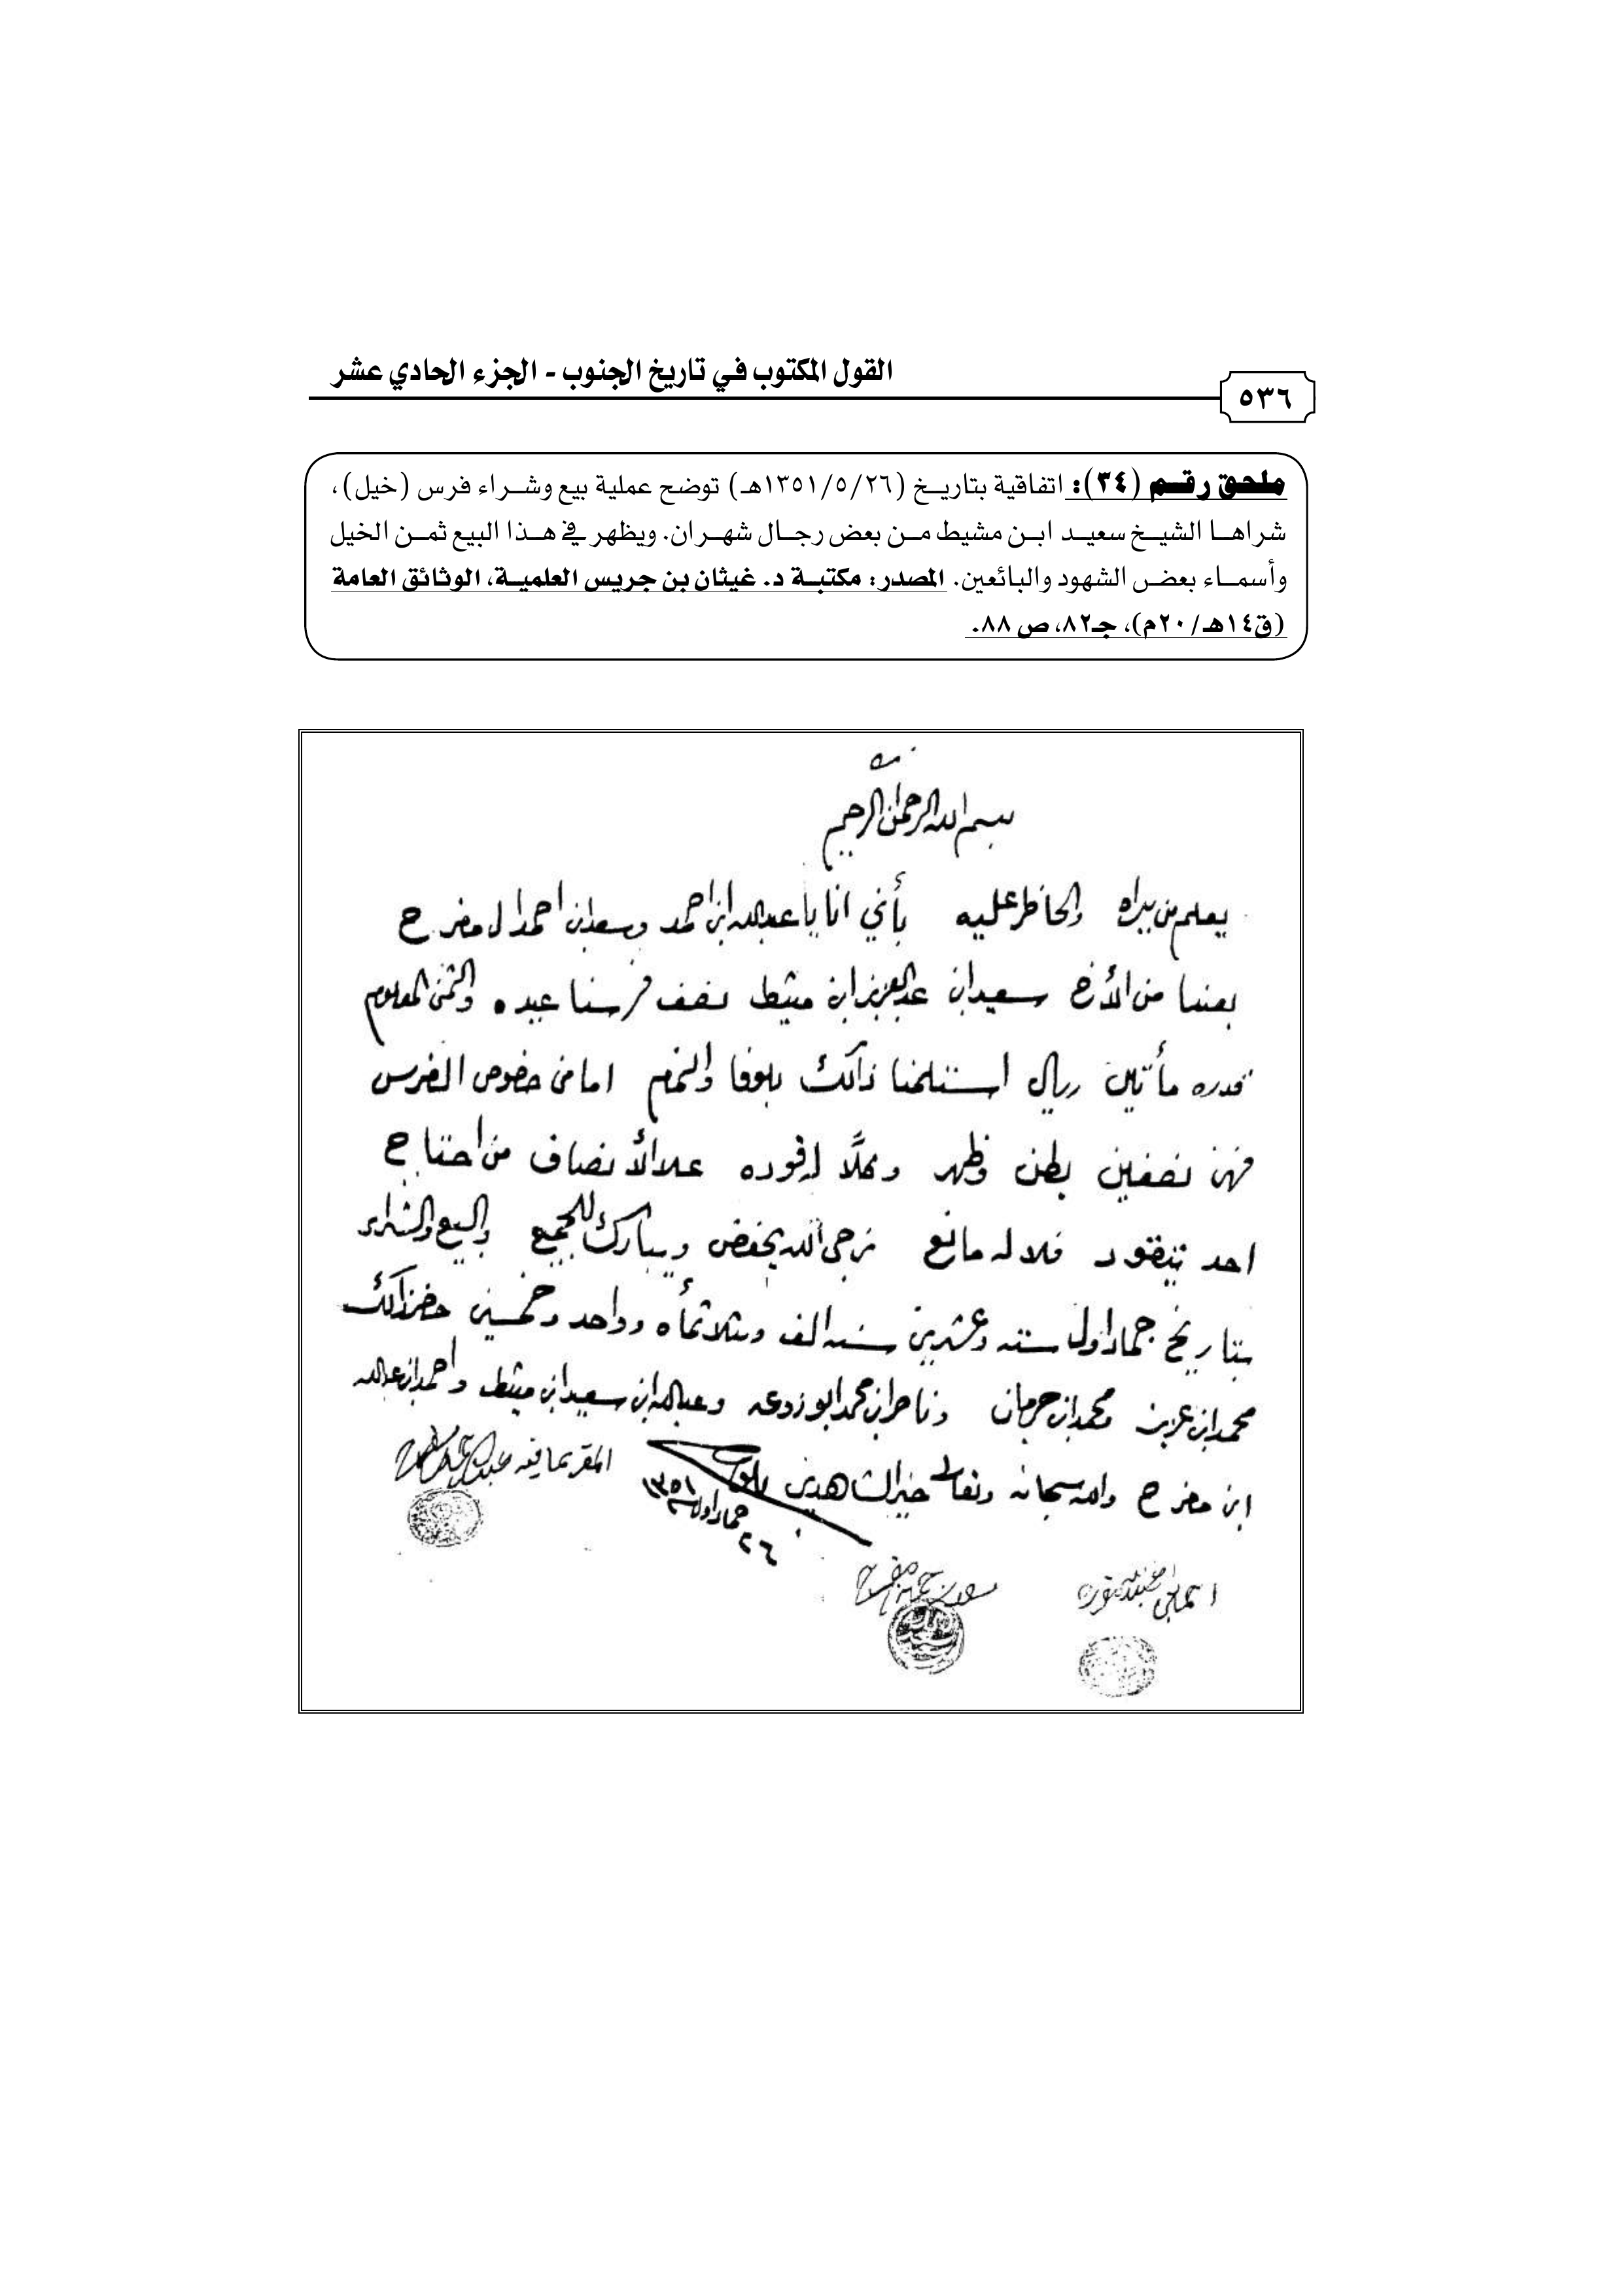 القول المكتوب في تاريخ الجنوب - الجزء الحادي عشر
٥٣٦
ملحق رقم (٣٤): اتفاقية بتاريخ (١٣٥١/٥/٢٦هـ) توضح عملية بيع وشراء فرس (خيل)،
شراها الشيخ سعيد ابن مشيط من بعض رجال شهران. ويظهر في هذا البيع ثمن الخيل
وأسماء بعض الشهود والبائعين. المصدر: مكتبة د. غيثان بن جريس العلمية، الوثائق العامة
(ق١٤هـ/٢٠م)، جـ٨٢، ص ٨٨.
بسم الله الرحمن الرحيم
يعلم من يراه والحاظر عليه بأني انا يا عبدالله ابن احمد وسعد ابن احمد ال مفرح
بعنا من الأخ سعيد ابن عبدالعزيز ابن مشيط نصف فرسنا عبده والثمن المعلوم
قدره مأتين ريال استلمنا ذالك بلوفا والتمم اما من خصوص الفرس
فهن نصفين بطن وظهر وكلاً علا الأنصاف من احتاج
احد تنقود فلا له مانع نرجى الله يحفض ويبارك للجميع والبيع والشراء
بتاريخ جماد اول سته وعشرين سنه الف وثلاثمأه وواحد وخمسين حضر ذالك
محمد ابن عزيز ومحمد ابن حرمان وناصر ابن محمد ابو زدعه وعبدالله ابن سعيد ابن مشيط واحمد ابن عبدالله
ابن مفرح والله سبحانه وتعالى خير الشاهدين
المقر بما فيه
٢٦ جماد اول سنه ١٣٥١